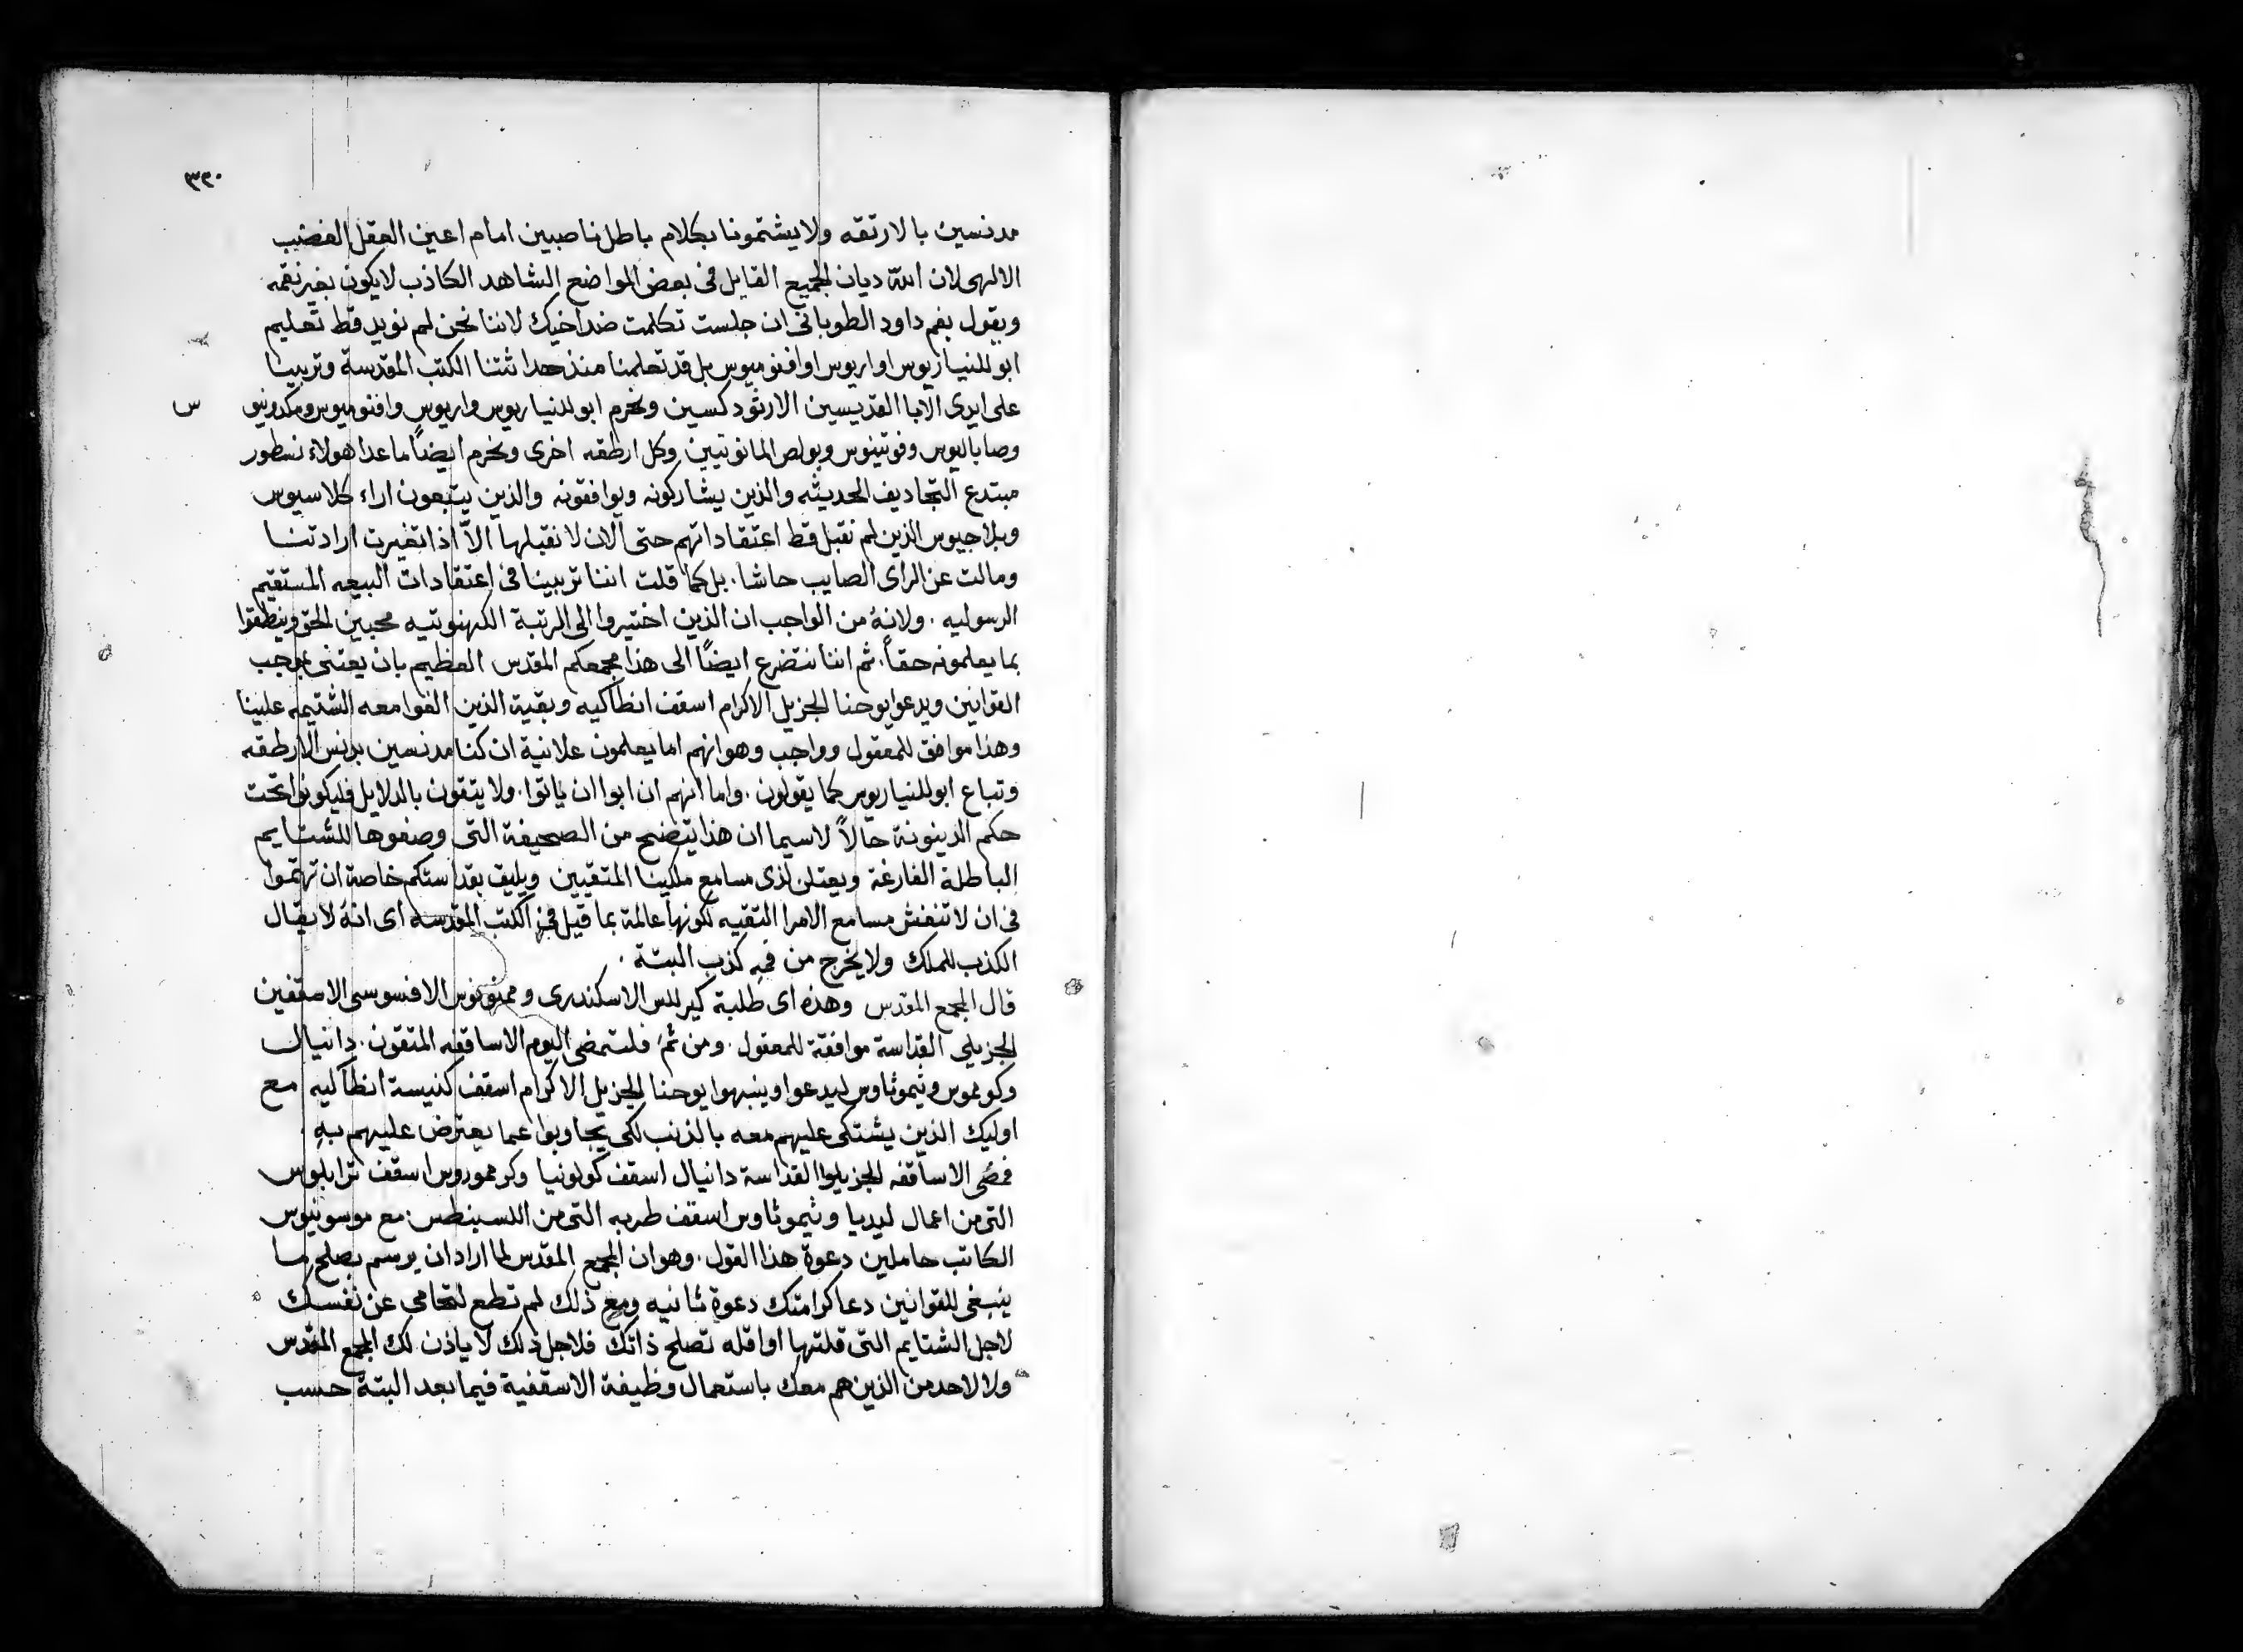 ٣٢٠
مدنسين بالارتقه ولايشتمونا بكلام باطل ناصبين امام اعين العقل الغضب
الالهى لان الله ديان لجميع القايل فى بعض المواضع الشاهد الكاذب لايكون بغير نقمه
ويقول بفم داود الطوبانى ان جلست تكلمت ضد اخيك لاننا نحن لم نويد قط تعليم
ابوللنياريوس او اريوس او افنوميوس بل قد تعلمنا منذ حداثتنا الكتب المقدسة وتربينا
على ايدى الابا القديسين الارثودكسين ونحرم ابوللنياريوس واريوس وافنوميوس ومكدونيو س
وصاباليوس وفوتينوس وبولص المانوتيين وكل ارطقه اخرى ونحرم ايضاً ماعدا هولاء نسطور
مبتدع التجاديف الحديثه والذين يشاركونه ويوافقونه والذين يتبعون اراء كلاسيوس
وبلاجيوس الذين لم نقبل قط اعتقاداتهم حتى الان لا نقبلها الاّ اذا تغيرت ارادتنا
ومالت عن الراى الصايب حاشا. بل كما قلت اننا تربينا فى اعتقادات البيعه المستقيم
الرسوليه . ولانه من الواجب ان الذين اختيروا الى الرتبة الكهنوتيه محبين الحق وينطقوا
بما يعلمونه حقاً. ثم اننا نتضرع ايضاً الى هذا مجمعكم المقدس العظيم بان يعتنى بموجب
القوانين ويدعوا يوحنا الجزيل الاكرام اسقف انطاكيه وبقية الذين الفوا معه الشتيمه علينا
وهذا موافق للمعقول وواجب وهو انهم اما يعلمون علانية ان كنا مدنسين بدنس الارطقه
وتباع ابوللنياريوس كما يقولون. واما انهم ان ابوا ان ياتوا. ولا يتقون بالدلايل فليكونوا تحت
حكم الدينونة حالاً لاسيما ان هذا يتضح من الصحيفة التى وصفوها للشتايم
الباطلة الفارغة ويعتلن لذى مسامع ملكينا المتقيين ويليق بقداستكم خاصة ان تهتموا
فى ان لا تنغش مسامع الامرا التقيه لكونها عالمة بما قيل فى الكتب المقدسه اى انه لا يقال
الكذب للملك ولا يخرج من فمه كذب البتة .
قال المجمع المقدس وهذه اى طلبة كيرللس الاسكندرى وممنونوس الافسوسى الاسقفين
الجزيلى القداسة موافقة للمعقول. ومن ثم فلتمضى اليوم الاساقفه المتقون. دانيال
وكوموس وثيموثاوس ليدعوا وينبهوا يوحنا الجزيل الاكرام اسقف كنيسة انطاكيه مع
اوليك الذين يشتكى عليهم معه بالذنب لكى يجاوبوا عما يعترض عليهم به .
فمضى الاساقفه الجزيلوا القداسة دانيال اسقف كولونيا وكوموروس اسقف ترابلوس
التى من اعمال ليديا وثيموثاوس اسقف طربه التى من اللسبنطس. مع موسونيوس
الكاتب حاملين دعوة هذا القول. وهو ان المجمع المقدس لما اراد ان يرسم بصلح ما
ينبغى للقوانين دعا كرامتك دعوة ثانيه ومع ذلك لم تطع لتحامى عن نفسك
لاجل الشتايم التى قلتها او اقله تصلح ذاتك فلاجل ذلك لا ياذن لك المجمع المقدس
ولا لاحد من الذين هم معك باستعمال وظيفة الاسقفية فيما بعد البتة حسب